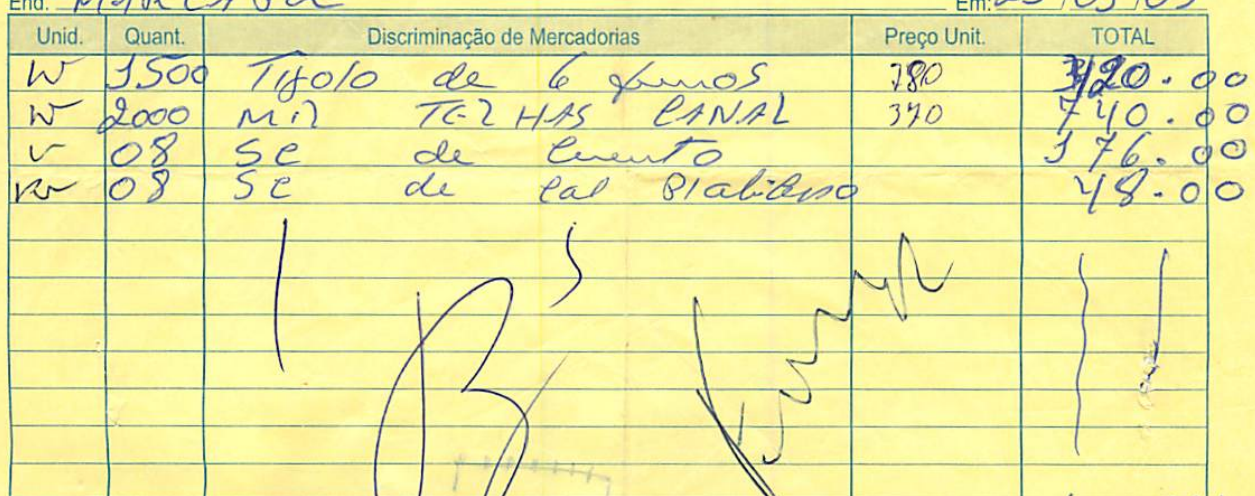 End. Em: /05/05
Unid. Quant. Discriminação de Mercadorias Preço Unit. TOTAL
1500 Tijolo de 6 furos 280 420.00
2000 Mil TELHAS CANAL 370 740.00
08 SC de Cimento 176.00
08 SC de Cal 48.00